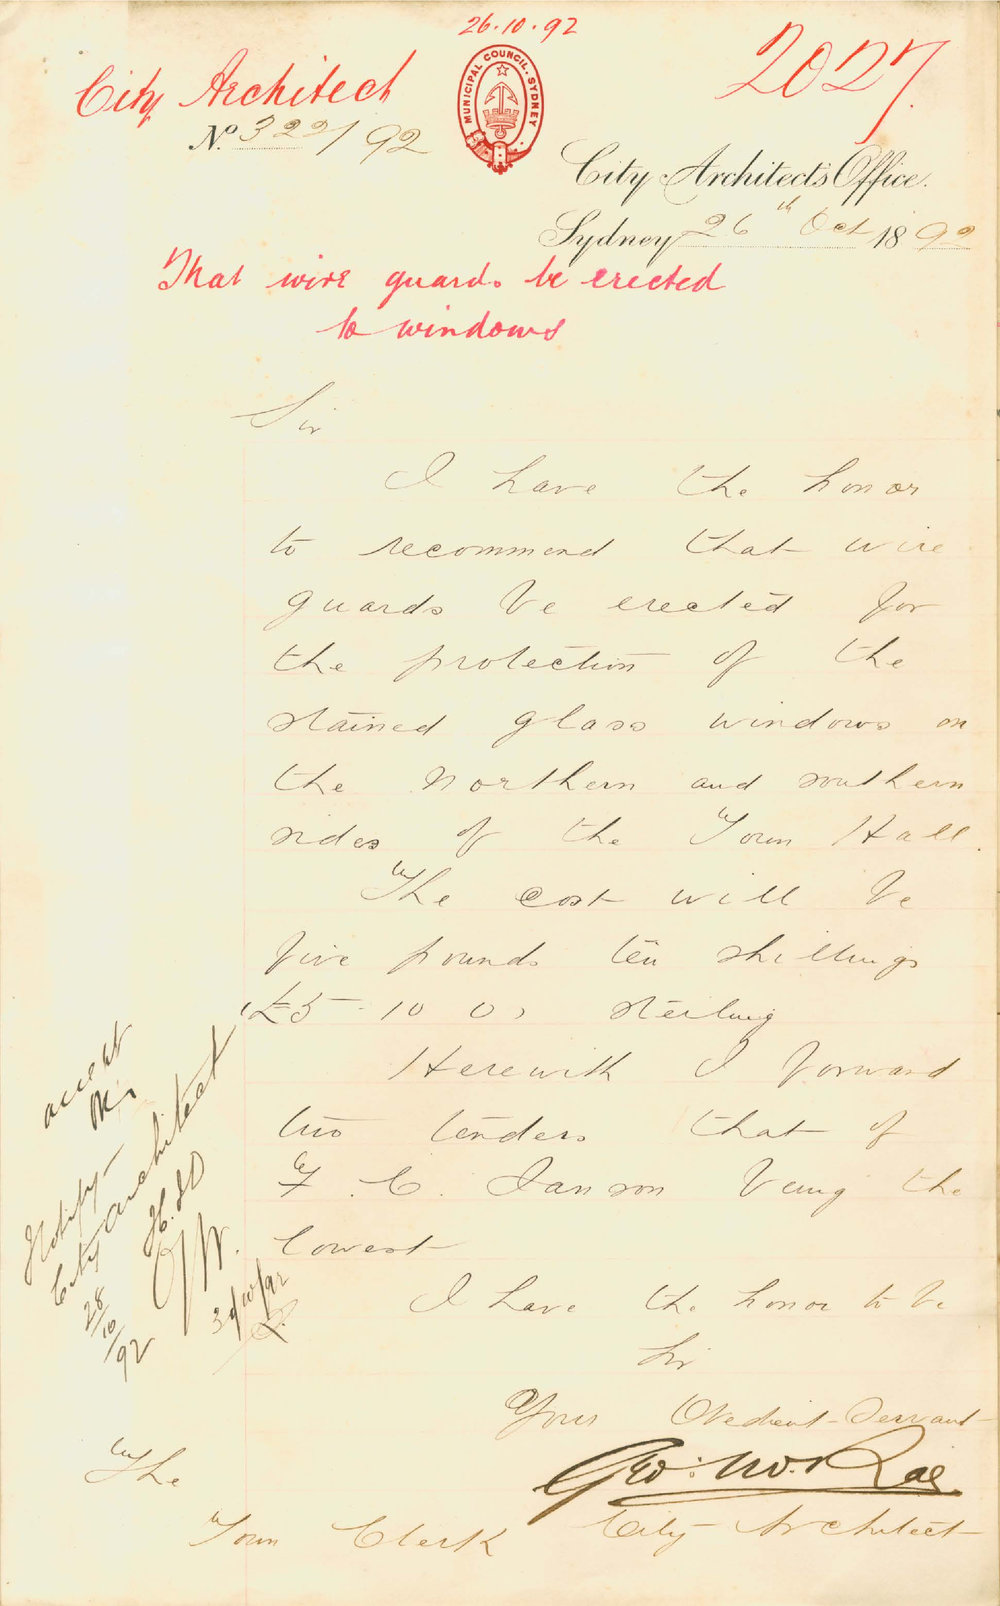 26.10.92
City Architect
2027
MUNICIPAL COUNCIL. SYDNEY
No. 322/92
City Architect's Office.
Sydney 26th Oct 1892
That wire guards be erected
to windows
Sir
I have the honor
to recommend that wire
guards be erected for
the protection of the
stained glass windows on
the Northern and southern
sides of the Town Hall.
The cost will be
five pounds ten shillings
(£5-10 0) sterling
Herewith I forward
two tenders that of
F. C. Janson being the
lowest
I have the honor to be
Sir
Your Obedient Servant
Geo: Mc.Rae
City Architect
The
Town Clerk
accept
Notify
City Architect
28/10/92